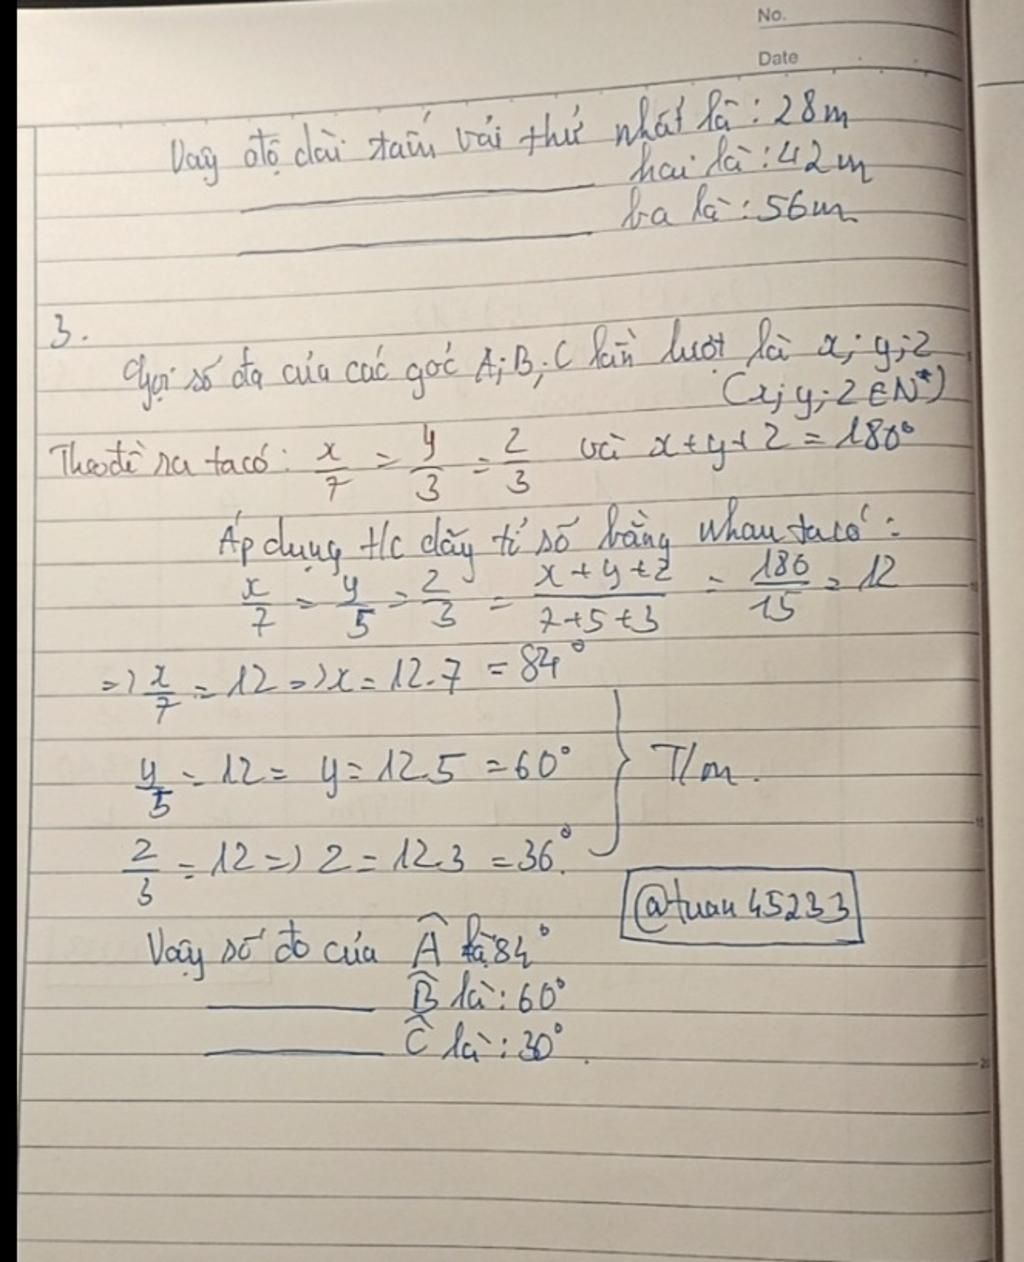 No.
Date
Vậy độ dài tấm vải thứ nhất là : 28m
hai là : 42m
ba là : 56m
3.
Gọi số đo của các góc A; B; C lần lượt là x; y; z
(x; y; z ∈ N*)
Theo đề ra ta có: x/7 = y/3 = z/3 và x + y + z = 180°
Áp dụng t/c dãy tỉ số bằng nhau ta có :
x/7 = y/5 = z/3 = x + y + z / 7 + 5 + 3 = 180/15 = 12
=> x/7 = 12 => x = 12.7 = 84°
y/5 = 12 = y = 12.5 = 60°
T/m.
z/3 = 12 => z = 12.3 = 36°.
@tuan45233
Vậy số đo của Â là 84°
B̂ là : 60°
Ĉ là : 30°.